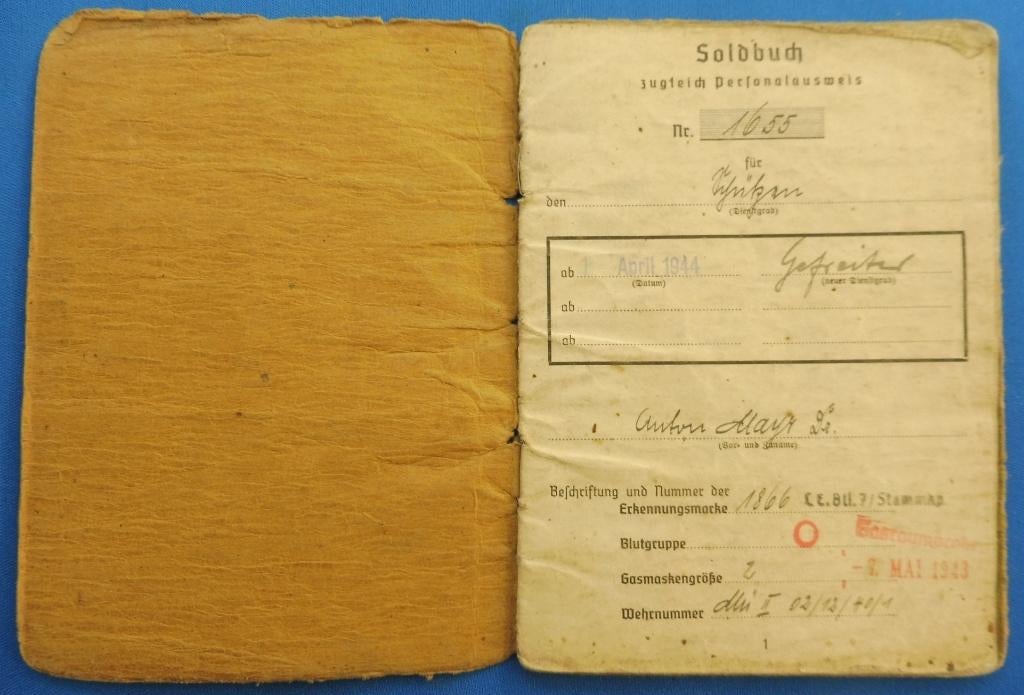 Soldbuch
zugleich Personalausweis
Nr. 1655
für
den Schützen
(Dienstgrad)
ab 1. April 1944 Gefreiter
(Datum) (neuer Dienstgrad)
ab
ab
Anton Mayr
(Vor- und Zuname)
Beschriftung und Nummer der
Erkennungsmarke 1866 L.E.Btl.7/Stammkp.
Blutgruppe O Gasraumprobe
Gasmaskengröße 2 -7. MAI 1943
Wehrnummer Mü II 02/12/40/1
1